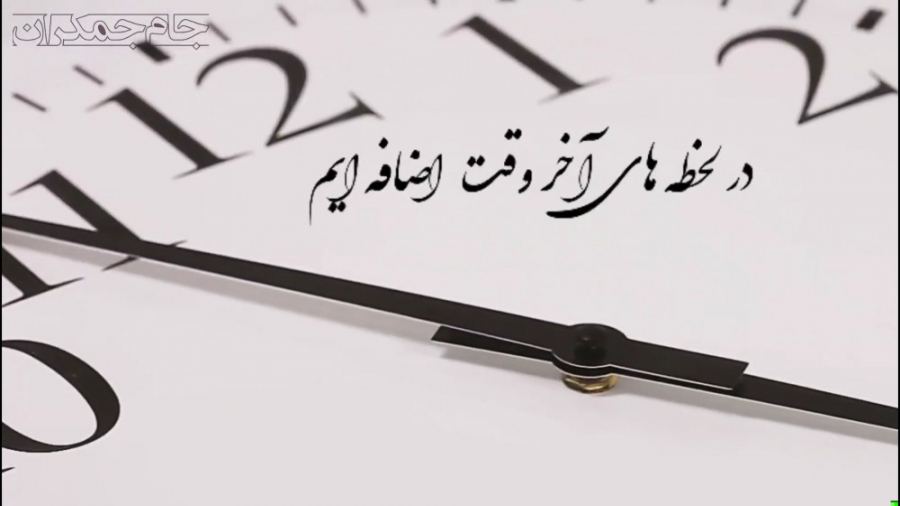 جام جمکران
12
1
2
در لحظه های آخر وقت اضافه ایم
11